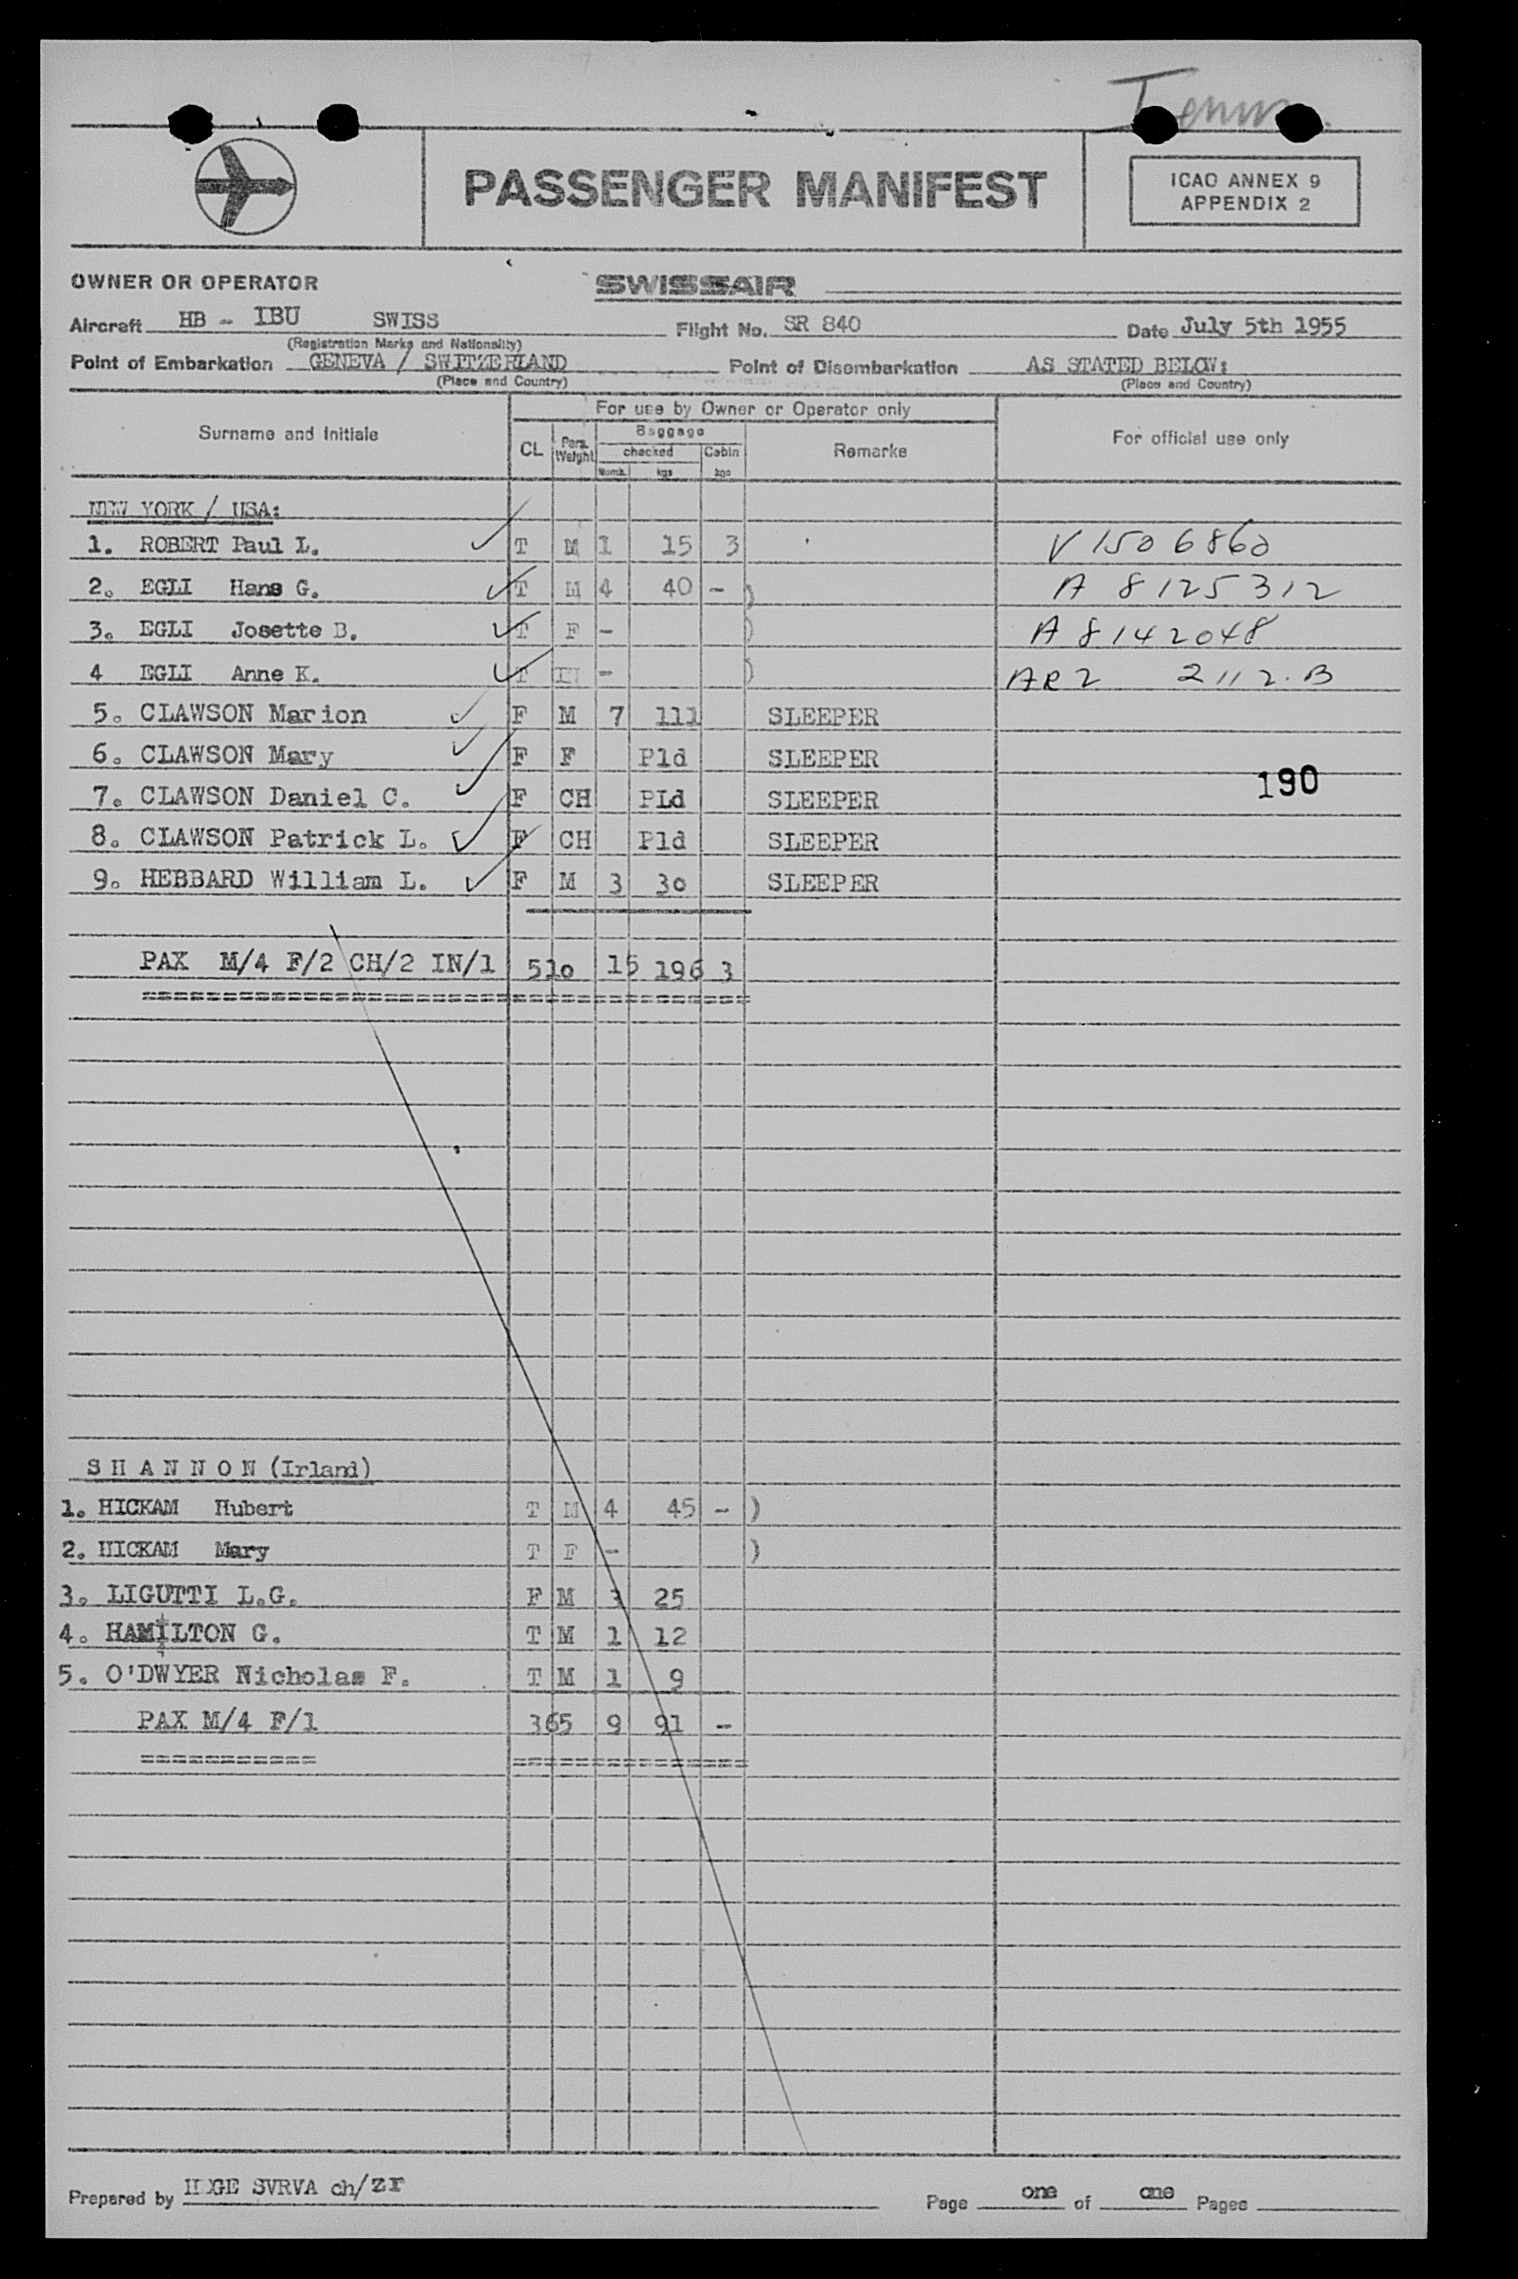 PASSENGER MANIFEST
ICAO ANNEX 9
APPENDIX 2
OWNER OR OPERATOR SWISSAIR
Aircraft HB - IBU SWISS Flight No. SR 840 Date July 5th 1955
(Registration Marks and Nationality)
Point of Embarkation GENEVA / SWITZERLAND Point of Disembarkation AS STATED BELOW:
(Place and Country) (Place and Country)
Surname and Initials CL Pers. Weight For use by Owner or Operator only Baggage checked Cabin Numb. kgs kgs Remarks For official use only
NEW YORK / USA:
1. ROBERT Paul L. T M 1 15 3 V 1506860
2. EGLI Hans G. T M 4 40 - ) A 8125312
3. EGLI Josette B. T F - ) A 8142048
4 EGLI Anne K. T IN - ) AR2 2112.B
5. CLAWSON Marion F M 7 111 SLEEPER
6. CLAWSON Mary F F Pld SLEEPER
190
7. CLAWSON Daniel C. F CH PLd SLEEPER
8. CLAWSON Patrick L. F CH Pld SLEEPER
9. HEBBARD William L. F M 3 3o SLEEPER
PAX M/4 F/2 CH/2 IN/1 51o 15 196 3
===========================
S H A N N O N (Irland)
1. HICKAM Hubert T M 4 45 - )
2. HICKAM Mary T F - )
3. LIGUTTI L.G. F M 3 25
4. HAMILTON G. T M 1 12
5. O'DWYER Nicholas F. T M 1 9
PAX M/4 F/1 365 9 91 -
=========== ===============
Prepared by SVRVA ch/zr Page one of one Pages